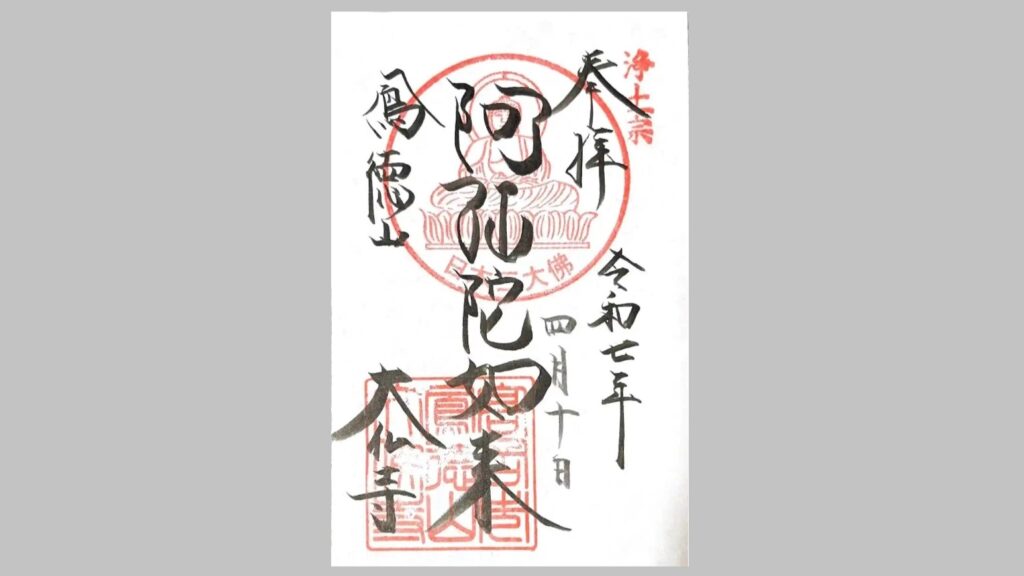 浄土宗
奉拝
令和七年
四月十日
阿弥陀如来
日本三大佛
鳳徳山
大仙寺